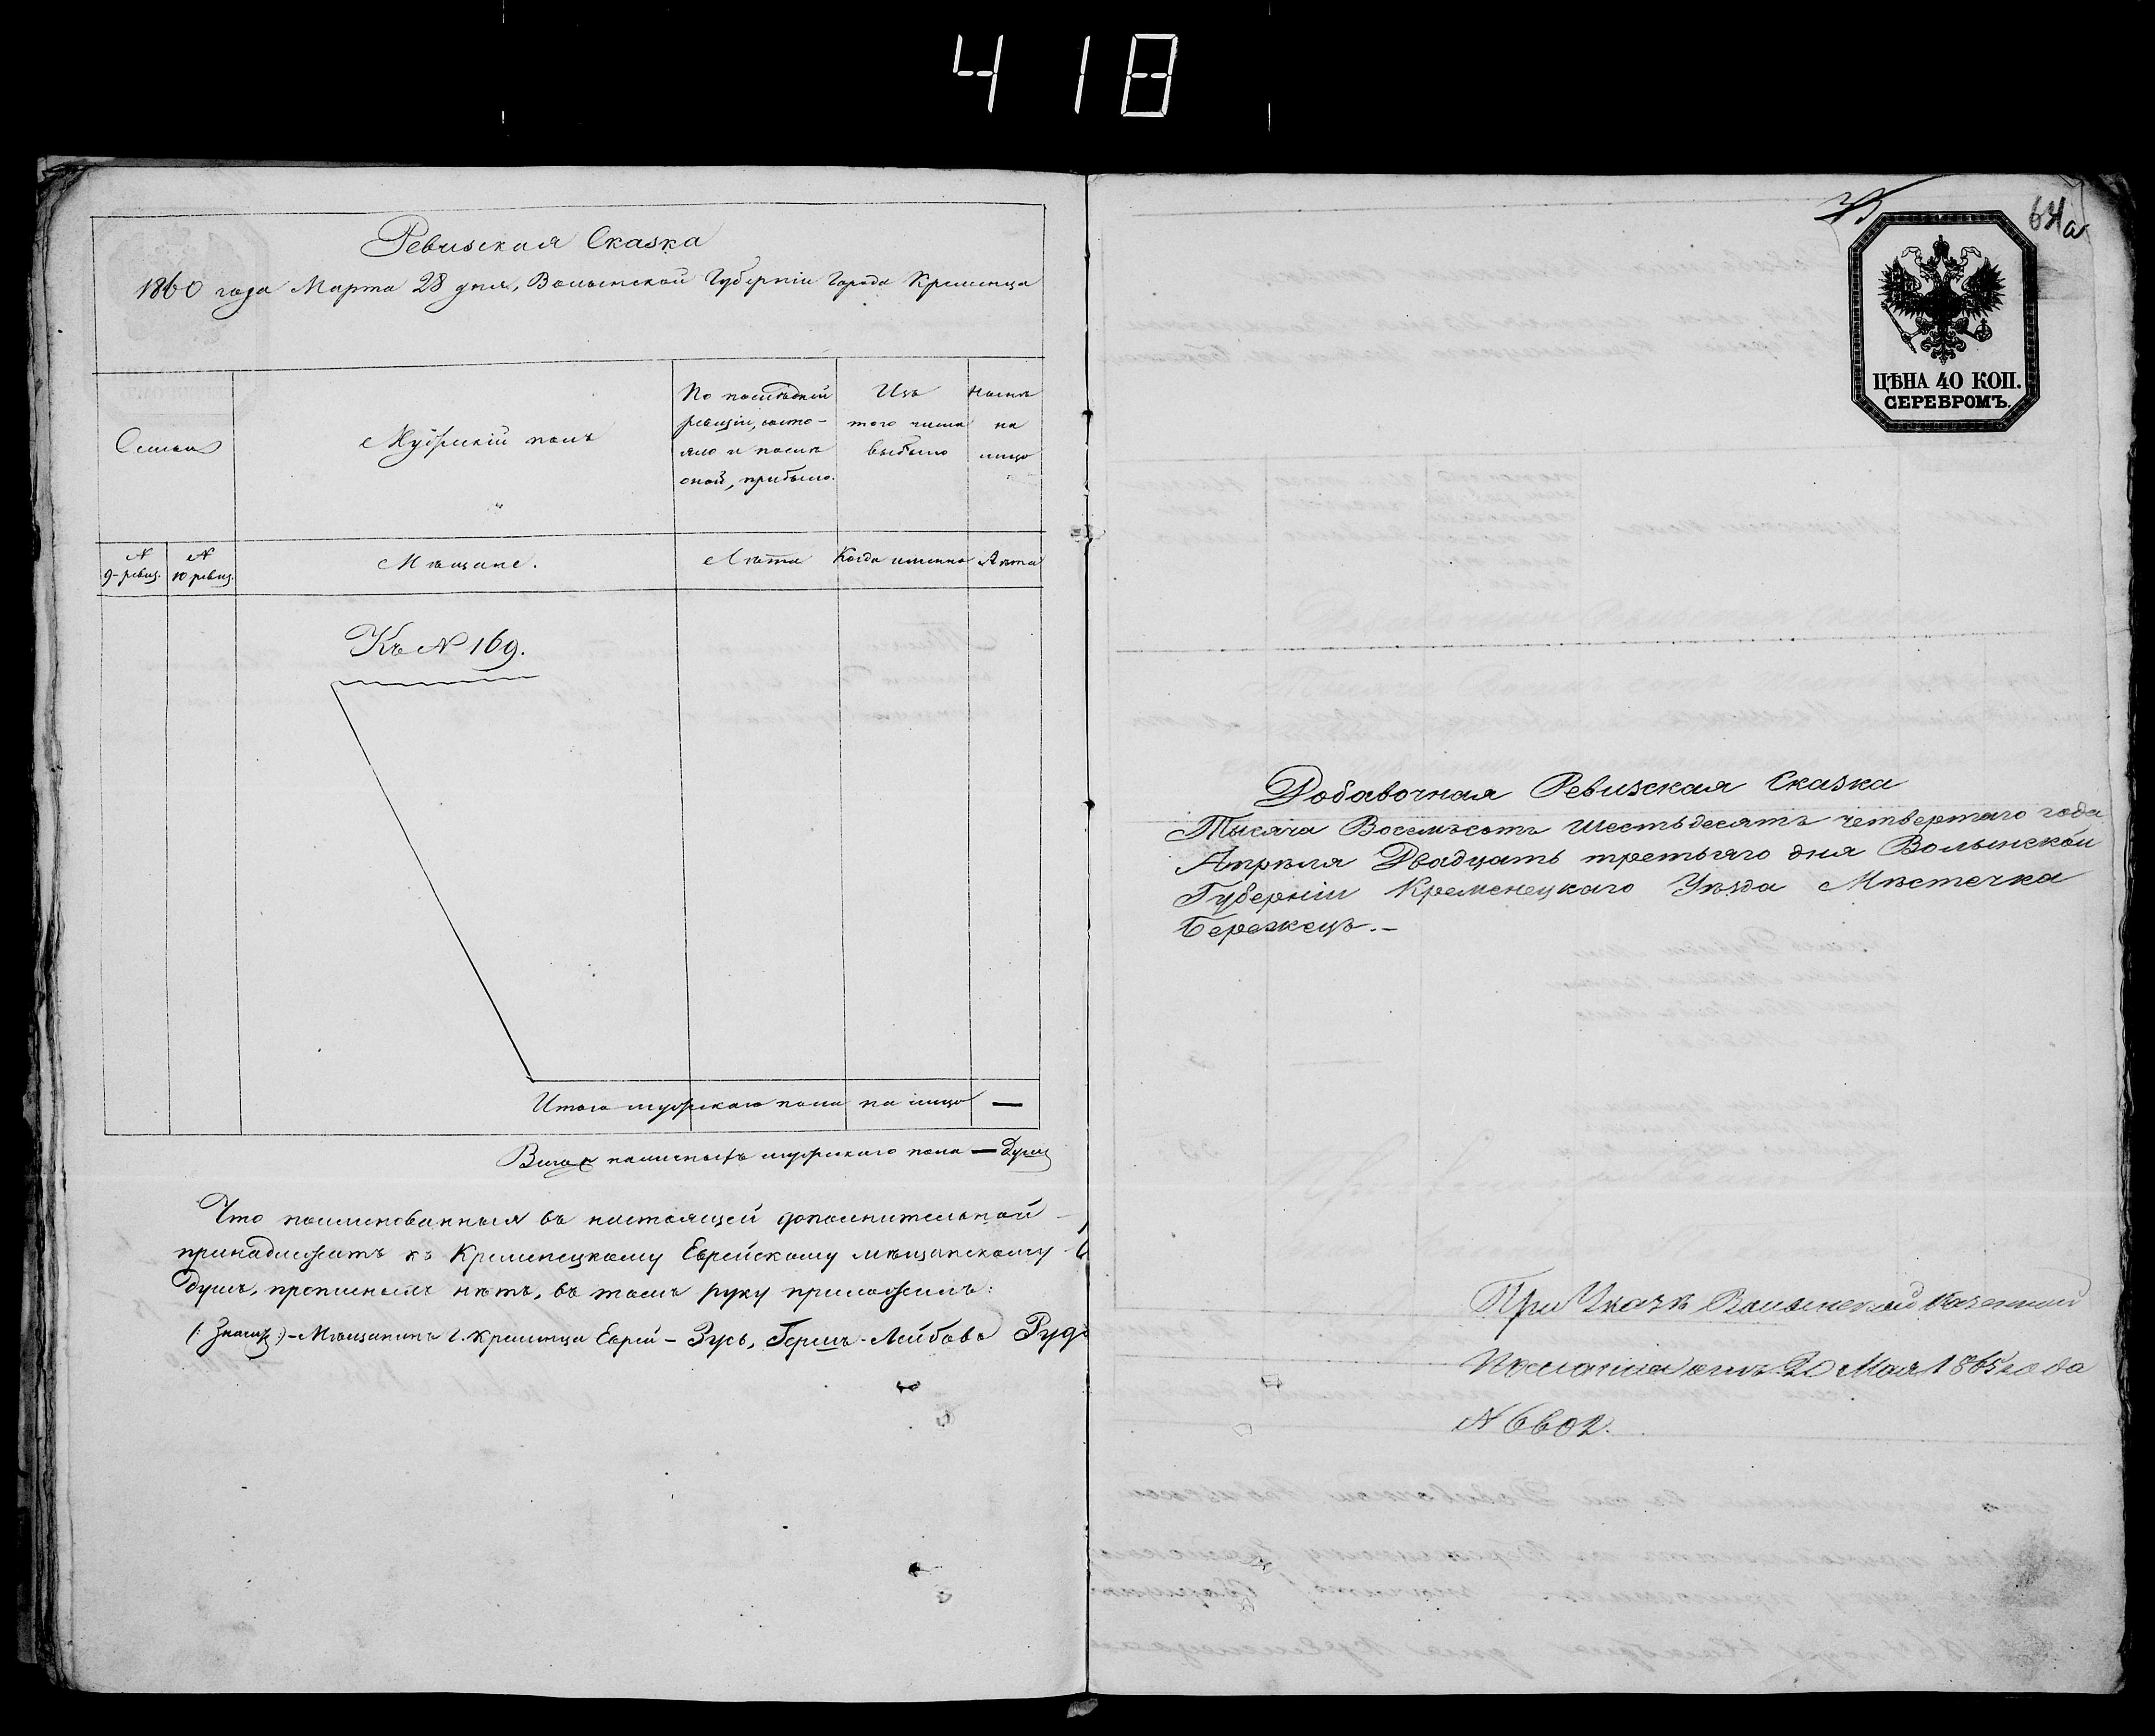 418
Ревизская Сказка
1860 года Марта 28 дня, Волынской Губерніи Города Кременца
Семьи
Мужескій полъ
По послѣдней
ревизіи, состо-
яло и послѣ
оной, прибыло.
Изъ
того числа
выбыло
Нынѣ
на
лицо
N
9-ревиз.
N
10 ревиз.
Мѣщане.
Лѣта
Когда именно
Лѣта
Къ N 169.
Итого мужескаго пола на лицо —
Всего мужескаго пола — душъ
Что поименованныя въ настоящей дополнительной
принадлежатъ къ Кременецкому Еврейскому мѣщанскому
душъ, прописныхъ нѣтъ, въ томъ руку приложилъ:
Мѣщанинъ г. Кременца Еврей - Зусь, Гершъ-Лейбовъ
64а
ЦѢНА 40 КОП.
СЕРЕБРОМЪ.
Добавочная Ревизская Сказка
Тысяча Восемьсотъ шестьдесятъ четвертаго года
Апрѣля Двадцать третьяго дня Волынской
Губерніи Кременецкаго Уѣзда Мѣстечка
Бережецъ.-
При Указѣ Волынской Казенной
Палаты отъ 20 Мая 1865 года
N 6602.